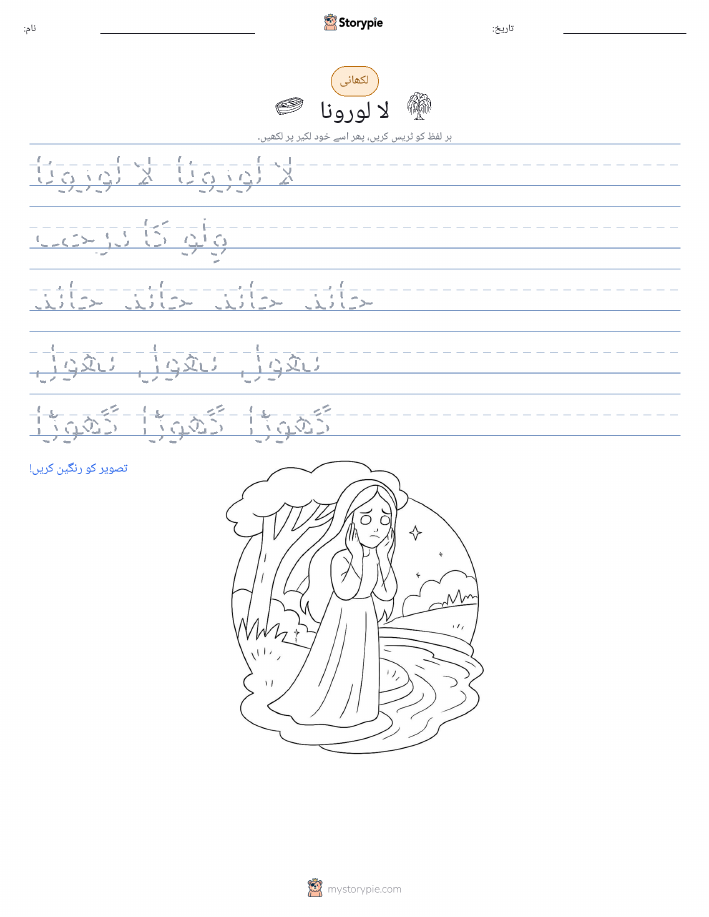 نام:
Storypie
تاریخ:
لکھائی
لا لورونا
ہر لفظ کو ٹریس کریں، پھر اسے خود لکیر پر لکھیں۔
لا لورونا لا لورونا
وِلو کا درخت
چاند چاند چاند چاند
پھول پھول پھول
گھوڑا گھوڑا گھوڑا
تصویر کو رنگین کریں!
mystorypie.com